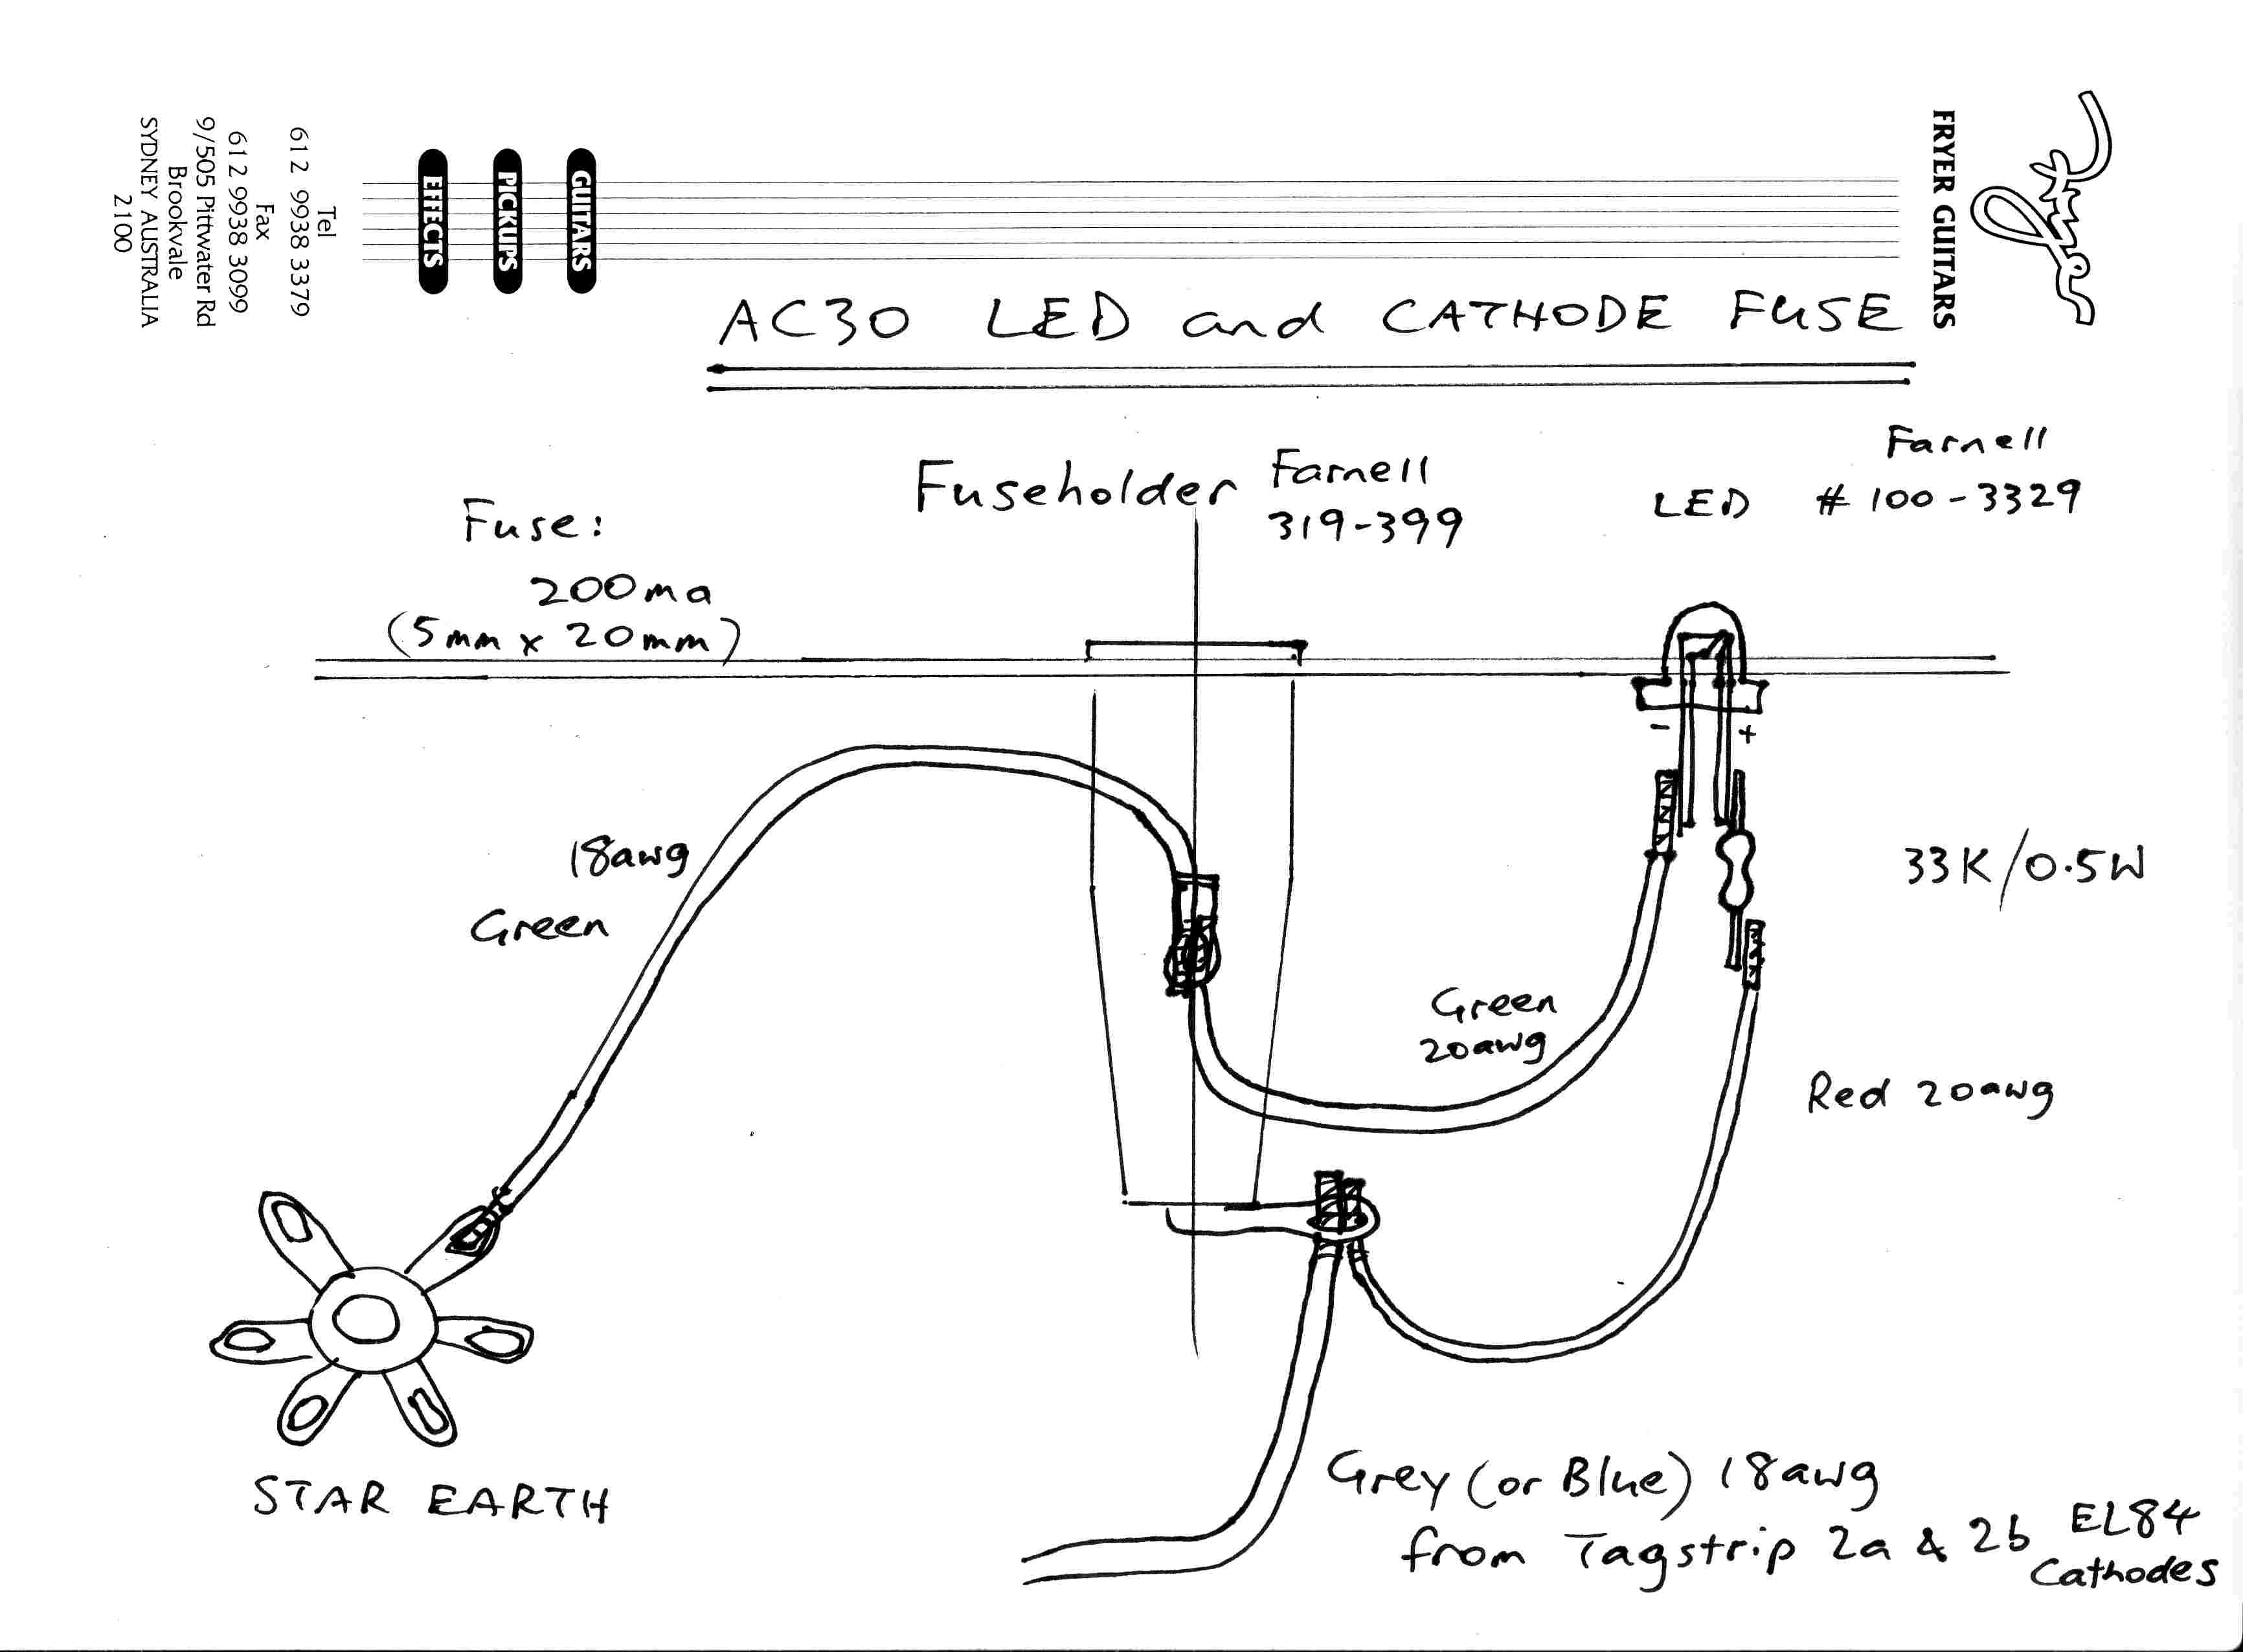 Fryer
FRYER GUITARS
GUITARS
PICKUPS
EFFECTS
Tel
612 9938 3379
Fax
612 9938 3099
9/505 Pittwater Rd
Brookvale
SYDNEY AUSTRALIA
2100
AC30 LED and CATHODE FUSE
Fuse:
200ma
(5mm x 20mm)
Fuseholder Farnell
319-399
Farnell
LED # 100-3329
- +
18awg
Green
33K/0.5W
Green
20awg
Red 20awg
STAR EARTH
Grey (or Blue) 18awg
from Tagstrip 2a & 2b EL84
Cathodes